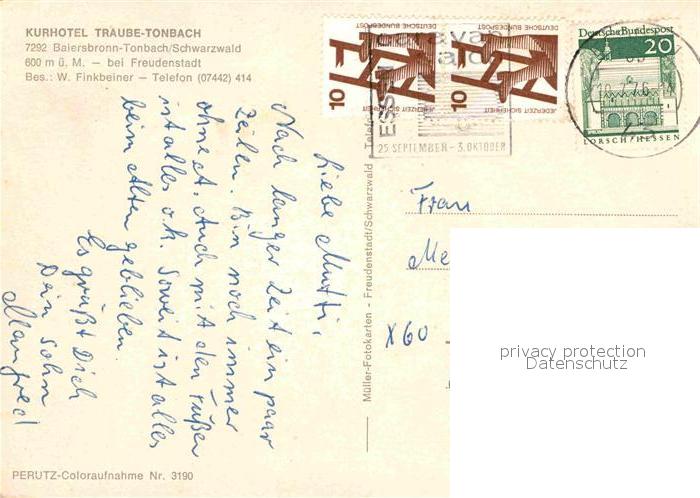 KURHOTEL TRAUBE-TONBACH
7292 Baiersbronn-Tonbach/Schwarzwald
600 m ü. M. — bei Freudenstadt
Bes.: W. Finkbeiner — Telefon (07442) 414
Liebe Mutti,
Nach langer Zeit ein paar
Zeilen. Bin noch immer
ohne A. Auch mit den Füßen
ist alles o.k. Soweit ist alles
beim Alten geblieben.
Es grüßt Dich
Dein Sohn
Manfred
PERUTZ-Coloraufnahme Nr. 3190
Müller-Fotokarten - Freudenstadt/Schwarzwald - Telefon
10
JEDERZEIT SICHERHEIT
DEUTSCHE BUNDESPOST
10
JEDERZEIT SICHERHEIT
DEUTSCHE BUNDESPOST
caravan
salon
ESSEN
25. SEPTEMBER - 3. OKTOBER
Deutsche Bundespost
20
LORSCH/HESSEN
Frau
Me
X60
privacy protection
Datenschutz